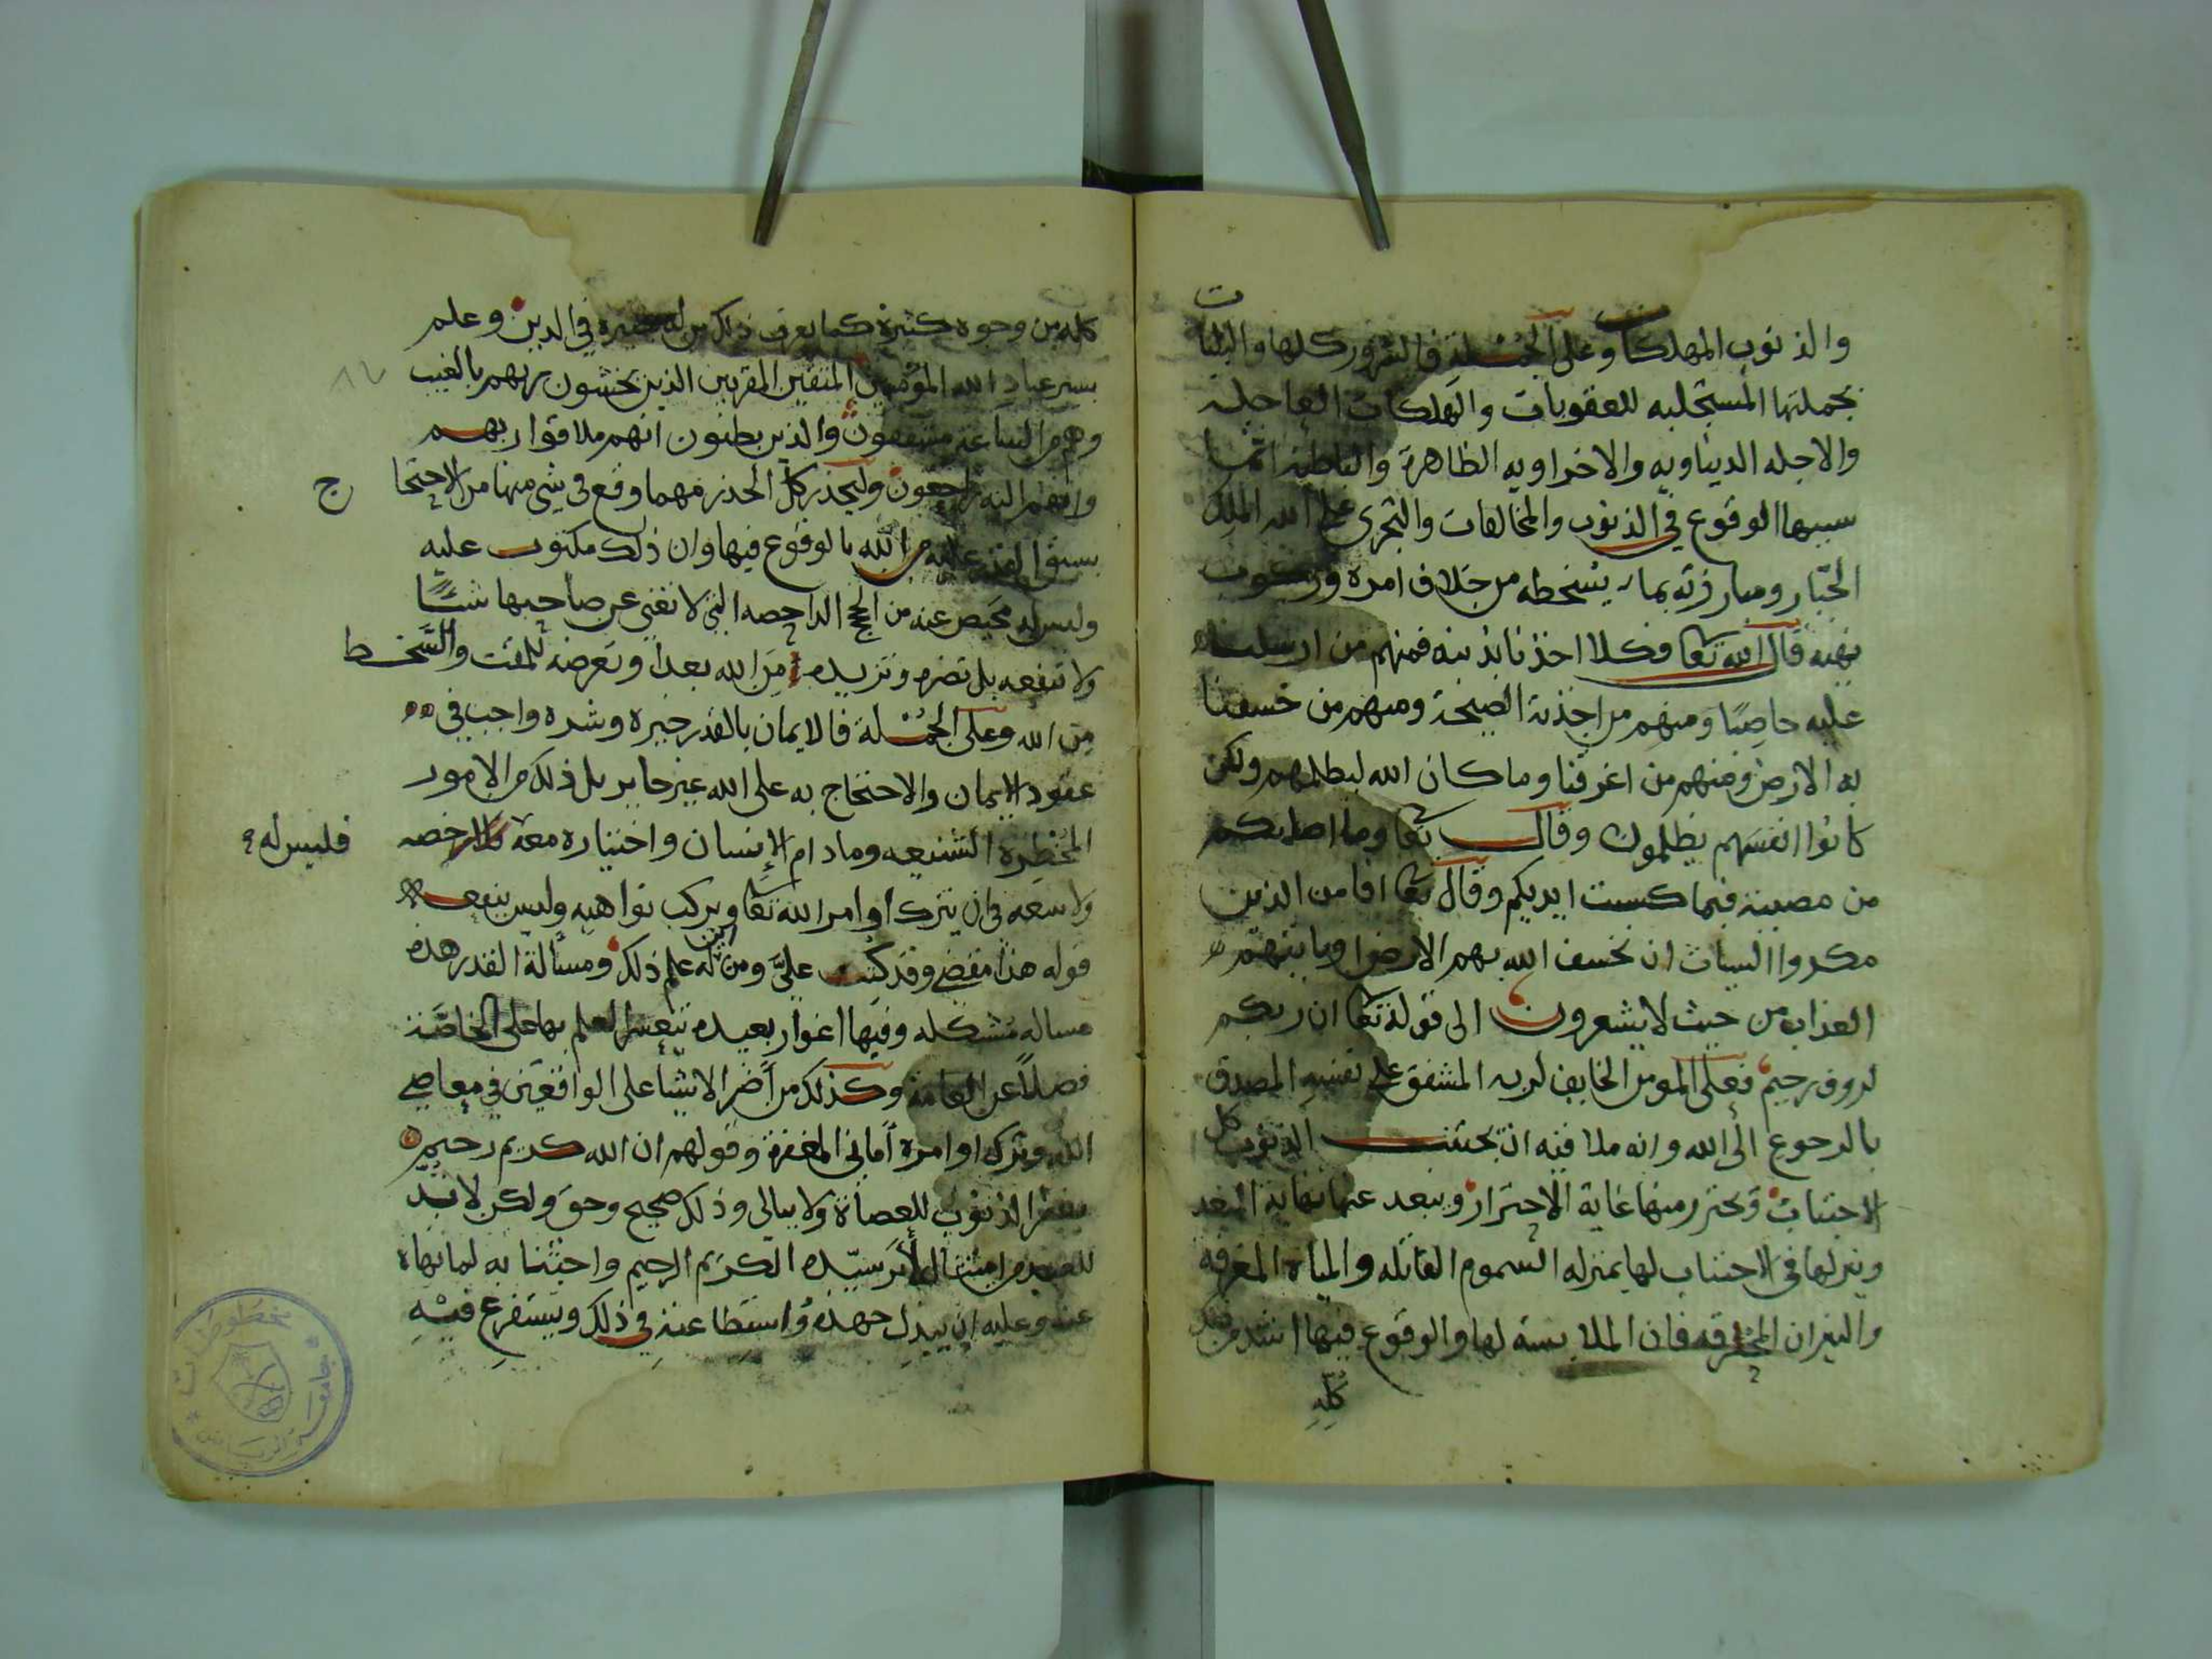 والذنوب المهلكات وعلى الجملة فالشرور كلها والبليات
بجملتها المستجلبه للعقوبات والهلكات العاجله
والاجله الديناويه والاخراويه الظاهرة والباطنه انما
سببها الوقوع في الذنوب والمخالفات والتجرى على الله الملك
الجبار ومبارزته بما يسخطه من خلاف امره وركوب
نهيه قال الله تعا فكلا اخذنا بذنبه فمنهم من ارسلنا
عليه حاصبا ومنهم من اخذته الصيحة ومنهم من خسفنا
به الارض ومنهم من اغرقنا وما كان الله ليظلمهم ولكن
كانوا انفسهم يظلمون وقال تعا وما اصابكم
من مصيبة فبما كسبت ايديكم وقال تعا افامن الذين
مكروا السيات ان يخسف الله بهم الارض او ياتيهم
العذاب من حيث لا يشعرون الى قوله تعا ان ربكم
لروف رحيم فعلى المومن الخايف لربه المشفق على نفسه المصدق
بالرجوع الى الله وانه ملاقيه ان يجتنب الذنوب كل
الاجتناب ويحترز منها غاية الاحتراز ويبعد عنها نهاية البعد
وينزلها في الاجتناب لها بمنزله السموم القاتله والمياه المغرقه
والنيران المحرقه فان الملابسة لها والوقوع فيها اشد من
كله
كله من وجوه كثيرة كما يعرف ذلك من له بصيره في الدين وعلم
بسير عباد الله المؤمنين المتقين المقربين الذين يخشون ربهم بالغيب
وهم من الساعة مشفقون والذين يظنون انهم ملاقوا ربهم
وانهم اليه راجعون وليحذر كل الحذر مهما وقع في شي منها من الاحتجا
ج
بسبق القدر عليه من الله بالوقوع فيها وان ذلك مكتوب عليه
وليس له محيص عنه من الحجج الداحضه التي لا تغني عن صاحبها شيئا
ولا تنفعه بل تضره وتزيده من الله بعدا وتعرضه للمقت والسخط
من الله وعلى الجملة فالايمان بالقدر خيره وشره واجب في
عقود الايمان والاحتجاج به على الله غير جايز بل ذلك من الامور
المخطرة الشنيعه ومادام الانسان واختياره معه فليس له رخصه
ولا سعه في ان يترك اوامر الله تعا ويركب نواهيه وليس ينفعه
قوله هذا مقضي وقد كتب علي ومن اين له علم ذلك ومسالة القدر هذه
مساله مشكله وفيها اغوار بعيده يتعسر العلم بها على الخاصة
فضلا عن العامة وكذلك من اضر الاشيا على الواقعين في معاصي
الله وترك اوامره اماني المغفرة وقولهم ان الله كريم رحيم
يغفر الذنوب للعصاة ولا يبالي وذلك صحيح وحق ولكن لا بد
للعبد من امتثال لامر سيده الكريم الرحيم واجتنابه لما نهاه
عنه وعليه ان يبذل جهده واستطاعته في ذلك ويستفرغ فيه